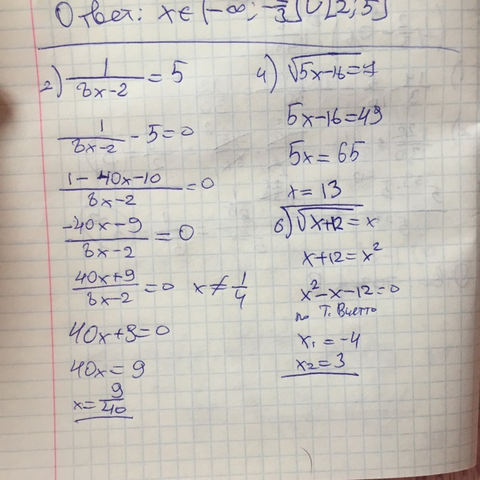 Ответ: x∈(-∞; -7/3]∪[2; 5]
2) 1/(8x-2) = 5
1/(8x-2) - 5 = 0
(1-40x-10)/(8x-2) = 0
(-40x-9)/(8x-2) = 0
(40x+9)/(8x-2) = 0 x≠1/4
40x+9=0
40x=9
x=9/40
4) √(5x-16)=7
5x-16=49
5x=65
x=13
6) √(x+12)=x
x+12=x²
x²-x-12=0
по Т. Виетто
x₁=-4
x₂=3